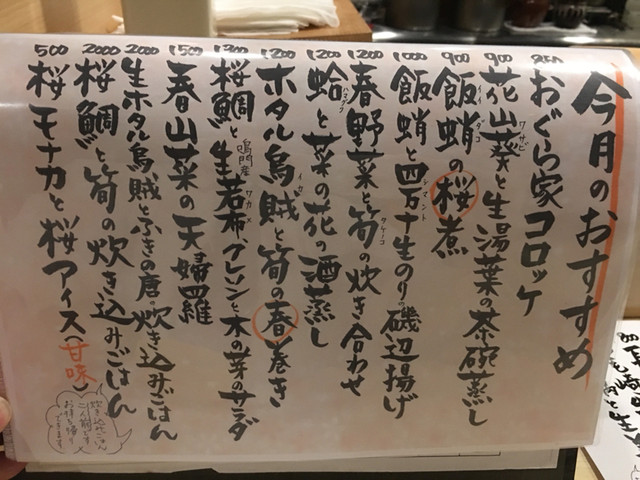 今月のおすすめ
おぐら家コロッケ
900
花山葵と生湯葉の茶碗蒸し
ワサビ
900
飯蛸の桜煮
イイダコ
1000
飯蛸と四万十生のりの磯辺揚げ
シマント
1200
春野菜と筍の炊き合わせ
タケノコ
1200
蛤と菜の花の酒蒸し
ハマグリ
1200
ホタル烏賊と筍の春巻き
イカ
1300
桜鯛と鳴門産生若布、クレソンと木の芽のサラダ
ワカメ
1500
春山菜の天婦羅
2000
生ホタル烏賊とふきの唐の炊き込みごはん
2000
桜鯛と筍の炊き込みごはん
500
桜モナカと桜アイス（甘味）
炊き込ごはん
お持ち帰り
できます